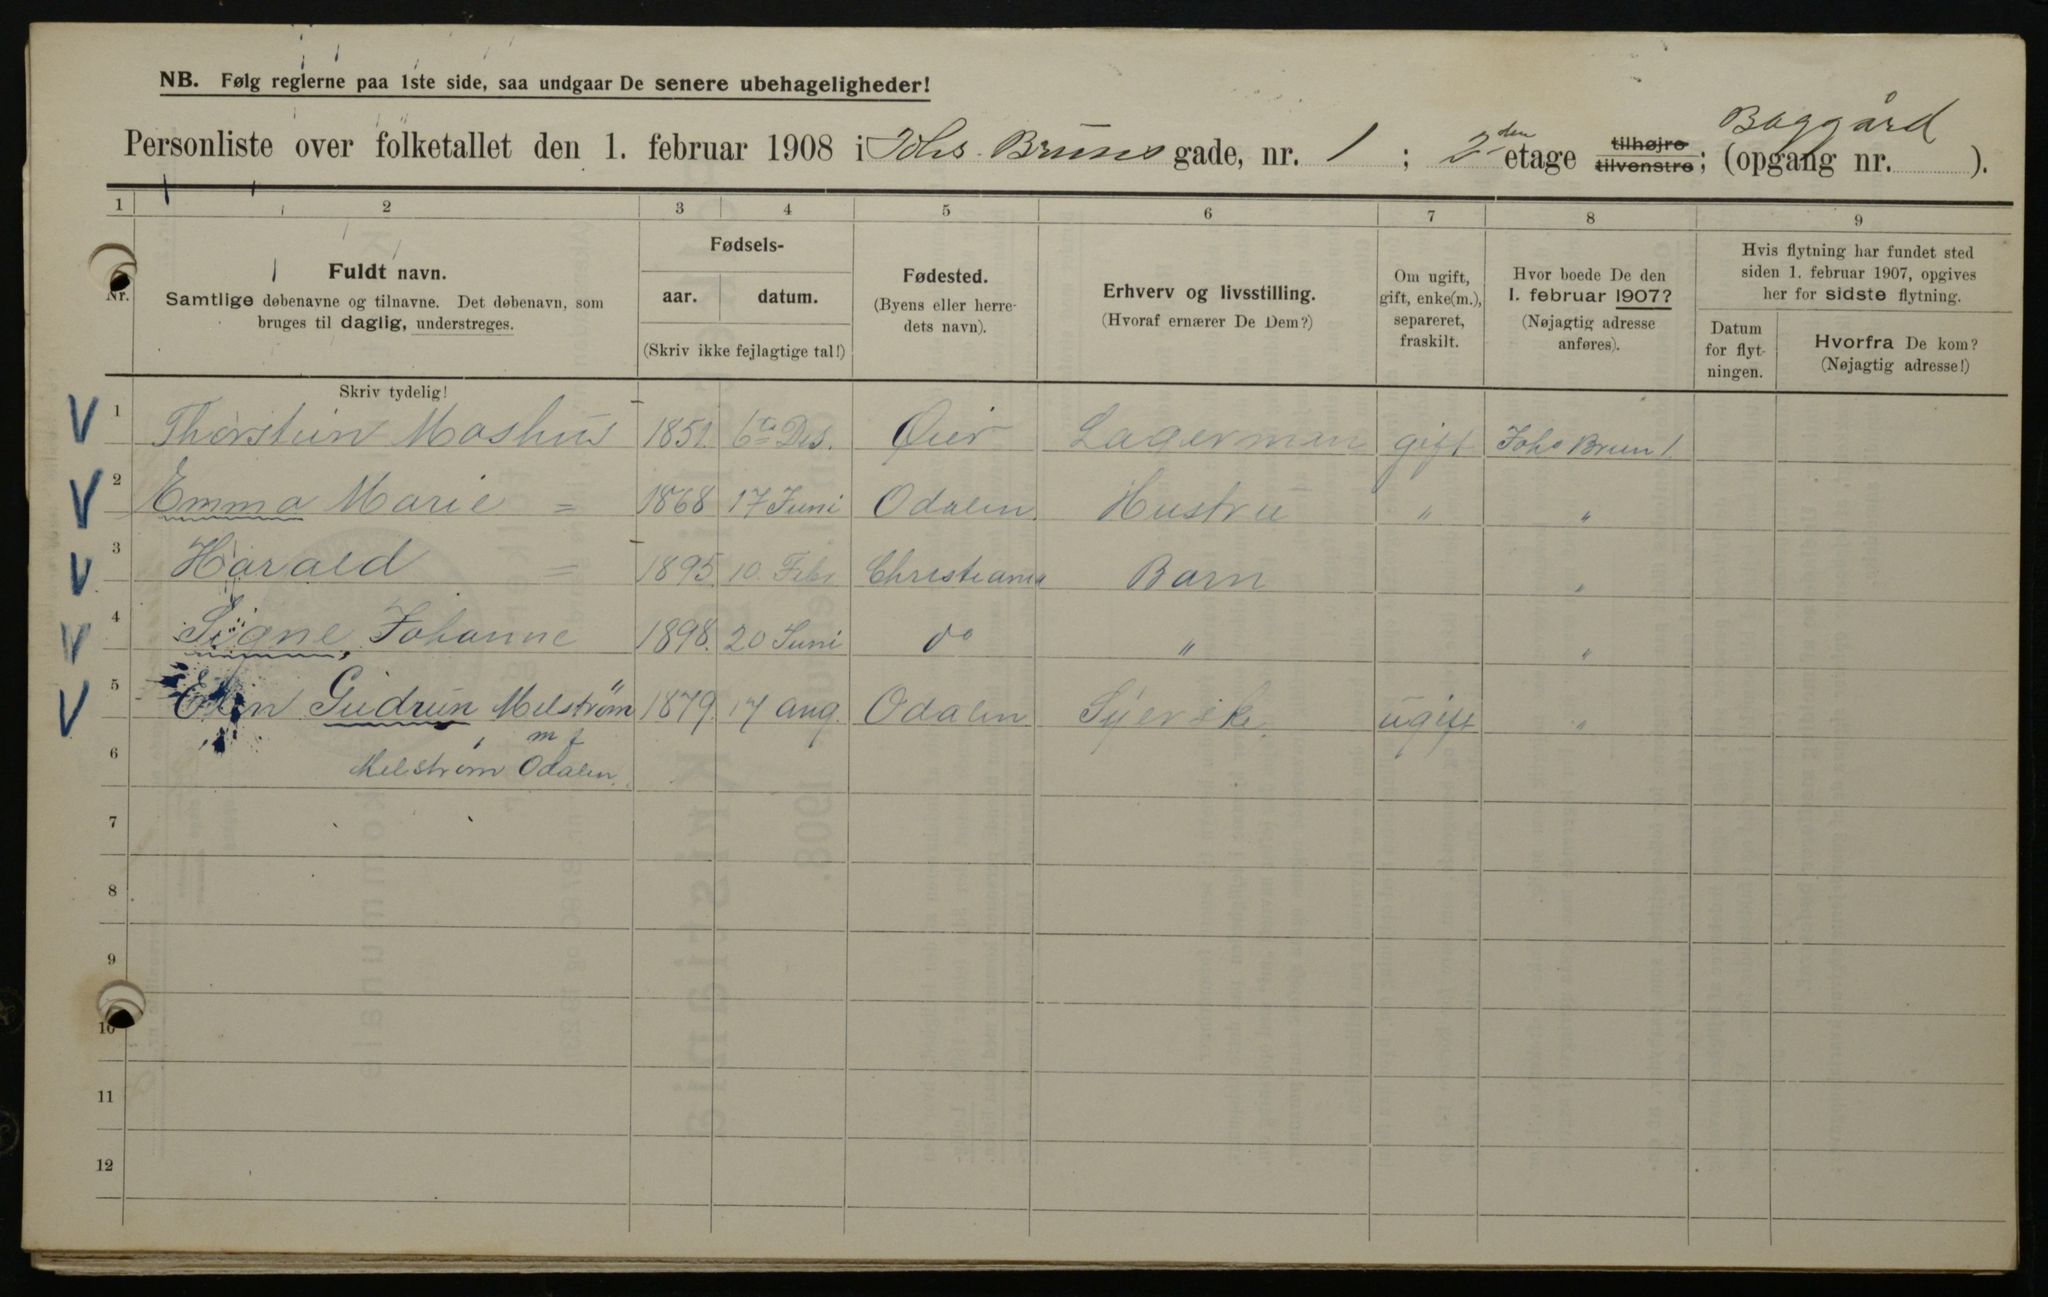 NB. Følg reglerne paa 1ste side, saa undgaar De senere ubehageligheder!
Baggård
Personliste over folketallet den 1. februar 1908 i Johs Bruns gade, nr. 1 ; 2den etage tilhøjre tilvenstre; (opgang nr. ).
1 2 3 4 5 6 7 8 9
Nr.
Fuldt navn.
Samtlige døbenavne og tilnavne. Det døbenavn, som
bruges til daglig, understreges.
Fødsels-
aar. datum.
(Skriv ikke fejlagtige tal!)
Fødested.
(Byens eller herre-
dets navn).
Erhverv og livsstilling.
(Hvoraf ernærer De Dem?)
Om ugift,
gift, enke(m.),
separeret,
fraskilt.
Hvor boede De den
1. februar 1907?
(Nøjagtig adresse
anføres).
Hvis flytning har fundet sted
siden 1. februar 1907, opgives
her for sidste flytning.
Datum
for flyt-
ningen.
Hvorfra De kom?
(Nøjagtig adresse!)
Skriv tydelig!
V 1 Thorstein Moshus 1851. 6te Des. Øier Lagerman gift Johs Brun 1.
V 2 Emma Marie = 1868 17 Juni Odalen Hustru " "
V 3 Harald = 1895 10. Febr Christiania Barn "
V 4 Signe, Johanne 1898. 20 Juni do " "
V 5 Gudrun Melstrøm 1879. 17 aug. Odalen Syerske. ugift "
m f
6 Melstrøm Odalen.
7
8
9
10
11
12